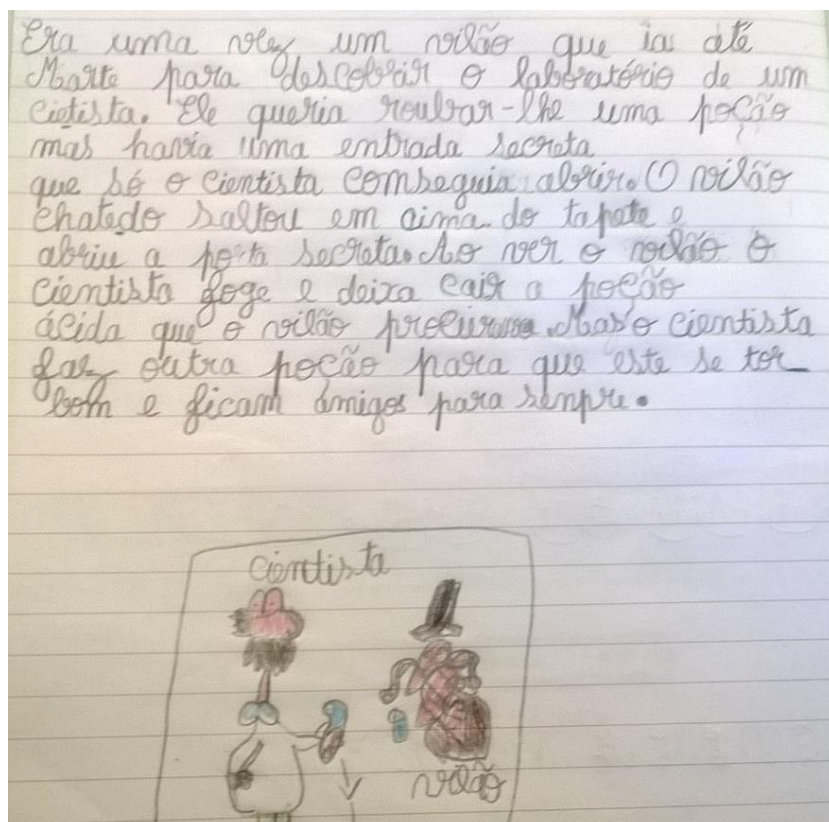 Era uma vez um vilão que ia até
Marte para descobrir o laboratório de um
cietista. Ele queria roubar-lhe uma poção
mas havia uma entrada secreta
que só o cientista comseguia abrir. O vilão
chatedo saltou em cima do tapate e
abriu a porta secreta. Ao ver o vilão o
cientista foge e deixa cair a poção
ácida que o vilão procurava. Mas o cientista
faz outra poção para que este se tor
bom e ficam amigos para senpre.
cientista
vilão